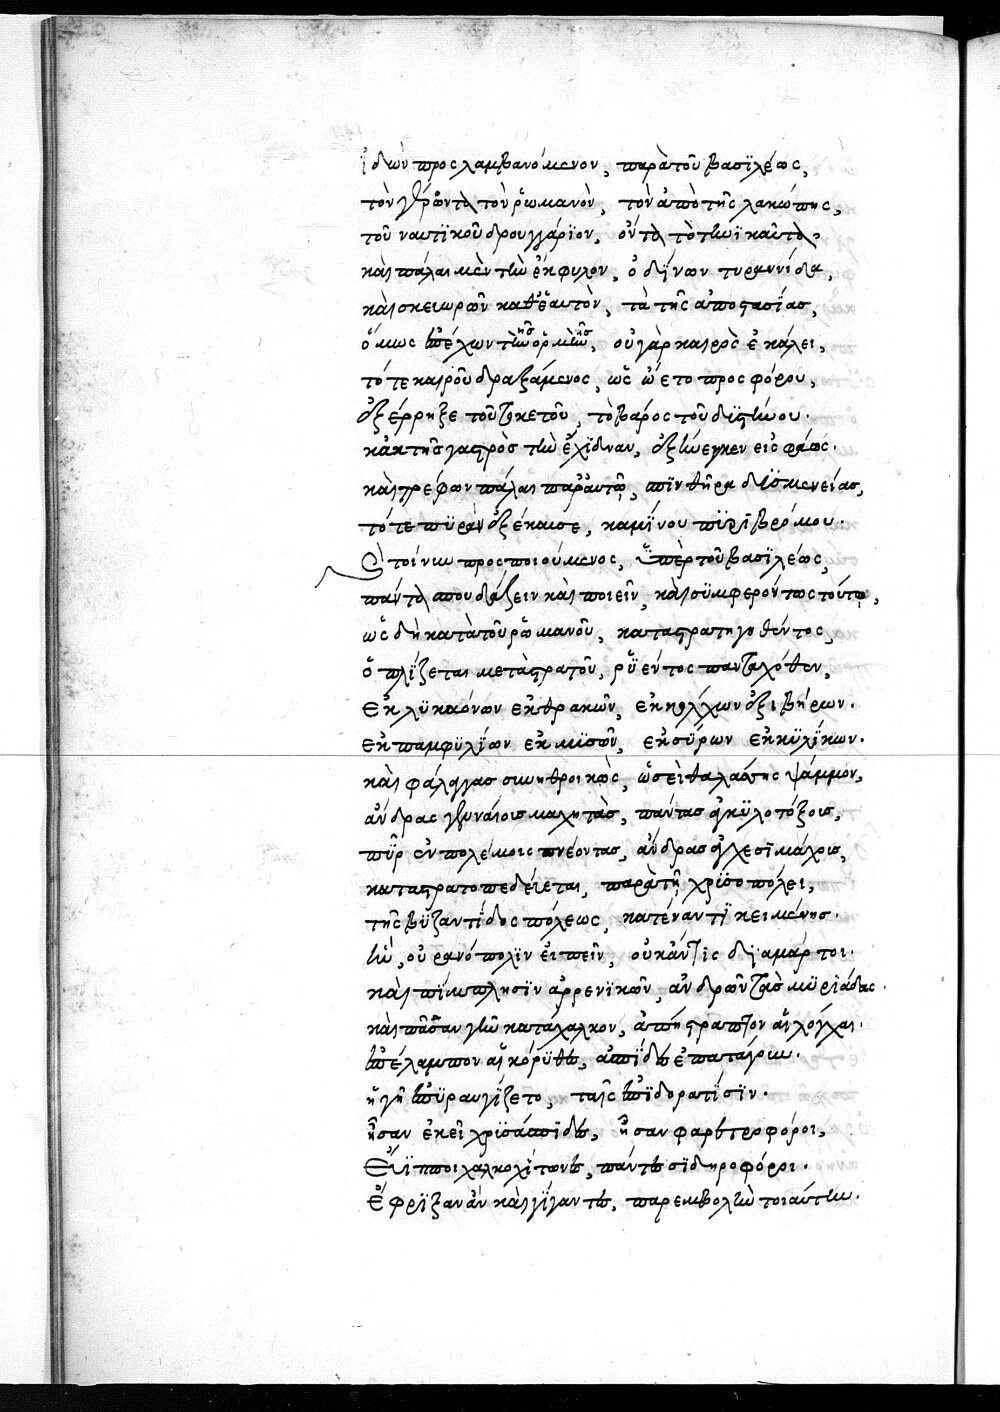 ἰδὼν προσλαμβανόμενον, παρὰ τοῦ βασιλέως,
τὸν γέροντα τὸν ῥωμανὸν, τὸν ἀπὸ τῆς λακώπης,
τοῦ ναυτικοῦ δρουγγάριον, ὄντα τὸ τηνικαῦτα,
καὶ πάλαι μὲν τὴν ἔκφυλον, ὀδίνων τυραννίδα,
καὶ σκευωρῶν καθ' ἑαυτὸν, τὰ τῆς ἀποστασίας,
ὅμως ἐπέχων τῆς ὁρμῆς, οὐ γὰρ καιρὸς ἐκάλει,
τότε καιροῦ δραξάμενος, ὡς ᾤετο προσφόρου,
ἐξέρρηξε τοῦ τοκετοῦ, τὸ βάρος τοῦ δυστήνου.
κἀκ τῆς γαστρὸς τὴν ἔχιδναν, ἐξήνεγκεν εἰς φάος.
καὶ τρέφων πάλαι παρ' αὐτῷ, σπινθῆρα δυσμενείας,
τότε πυρὰν ἐξέκαυσε, καμίνου πυριβρόμου.
Ὁ τοίνυν προσποιούμενος, ὑπὲρ τοῦ βασιλέως,
πάντα σπουδάζειν καὶ ποιεῖν, καὶ συμφερόντως τούτῳ,
ὡς δὴ κατὰ τοῦ ῥωμανοῦ, καταστρατηγηθέντος,
ὁπλίζεται μετὰ στρατοῦ, ῥυέντος πανταχόθεν,
ἐκ λυκαόνων ἐκ θρακῶν, ἐκ κολχων ἐξ ἰβήρων.
ἐκ παμφυλίων ἐκ μυσῶν, ἐκ σύρων ἐκ κυλίκων.
καὶ φάλαγγας συνηθροικὼς, ὡσεὶ θαλάσσης ψάμμον,
ἄνδρας γενναίους μαχητὰς, πάντας ἀγκυλοτόξους,
πῦρ ἐν πολέμοις πνέοντας, ἄνδρας ἐγχεσιμάχους,
καταστρατοπεδεύεται, παρὰ τῇ χρυσοπόλει,
τῆς βυζαντίδος πόλεως, κατέναντι κειμένης.
ἣν, οὐρανόπολιν εἰπεῖν, οὐκ ἄν τις διαμάρτοι.
καὶ πίμπλησιν ἀρρενικῶν, ἀνδρῶν τὰς μυριάδας.
καὶ πᾶσαν γῆν κατάχαλκον, ἀπήστραπτον αἱ λόγχαι.
ἐπέλαμπον αἱ κόρυθες, ἀσπίδες ἐπαταίρων.
ἡ γῆ ἐπυραυγίζετο, ταῖς ἐπιδορατίσιν.
ἦσαν ἐκεῖ χρυσάσπιδες, ἦσαν φαρετροφόροι,
ἔνιπποι χαλκοχίτωνες, πάντες σιδηροφόροι.
ἔφριξαν ἂν καὶ γίγαντες, παρεμβολὴν τοιαύτην.